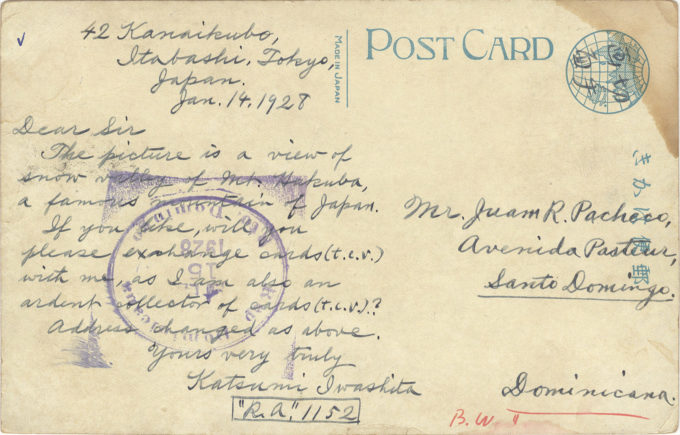 42 Kanaikubo,
Itabashi, Tokyo,
Japan.
Jan. 14, 1928
Dear Sir
The picture is a view of
snow valley of Mt. Hakuba,
a famous mountain of Japan.
If you like, will you
please exchange cards (t.c.v.)
with me, as I am also an
ardent collector of cards (t.c.v.)?
Address changed as above.
Yours very truly
Katsumi Iwashita
"R.A." 1152
MADE IN JAPAN
POST CARD
きかは便郵
Mr. Juan R. Pacheco,
Avenida Pasteur,
Santo Domingo.
Dominicana.
B.W. "
1928
15